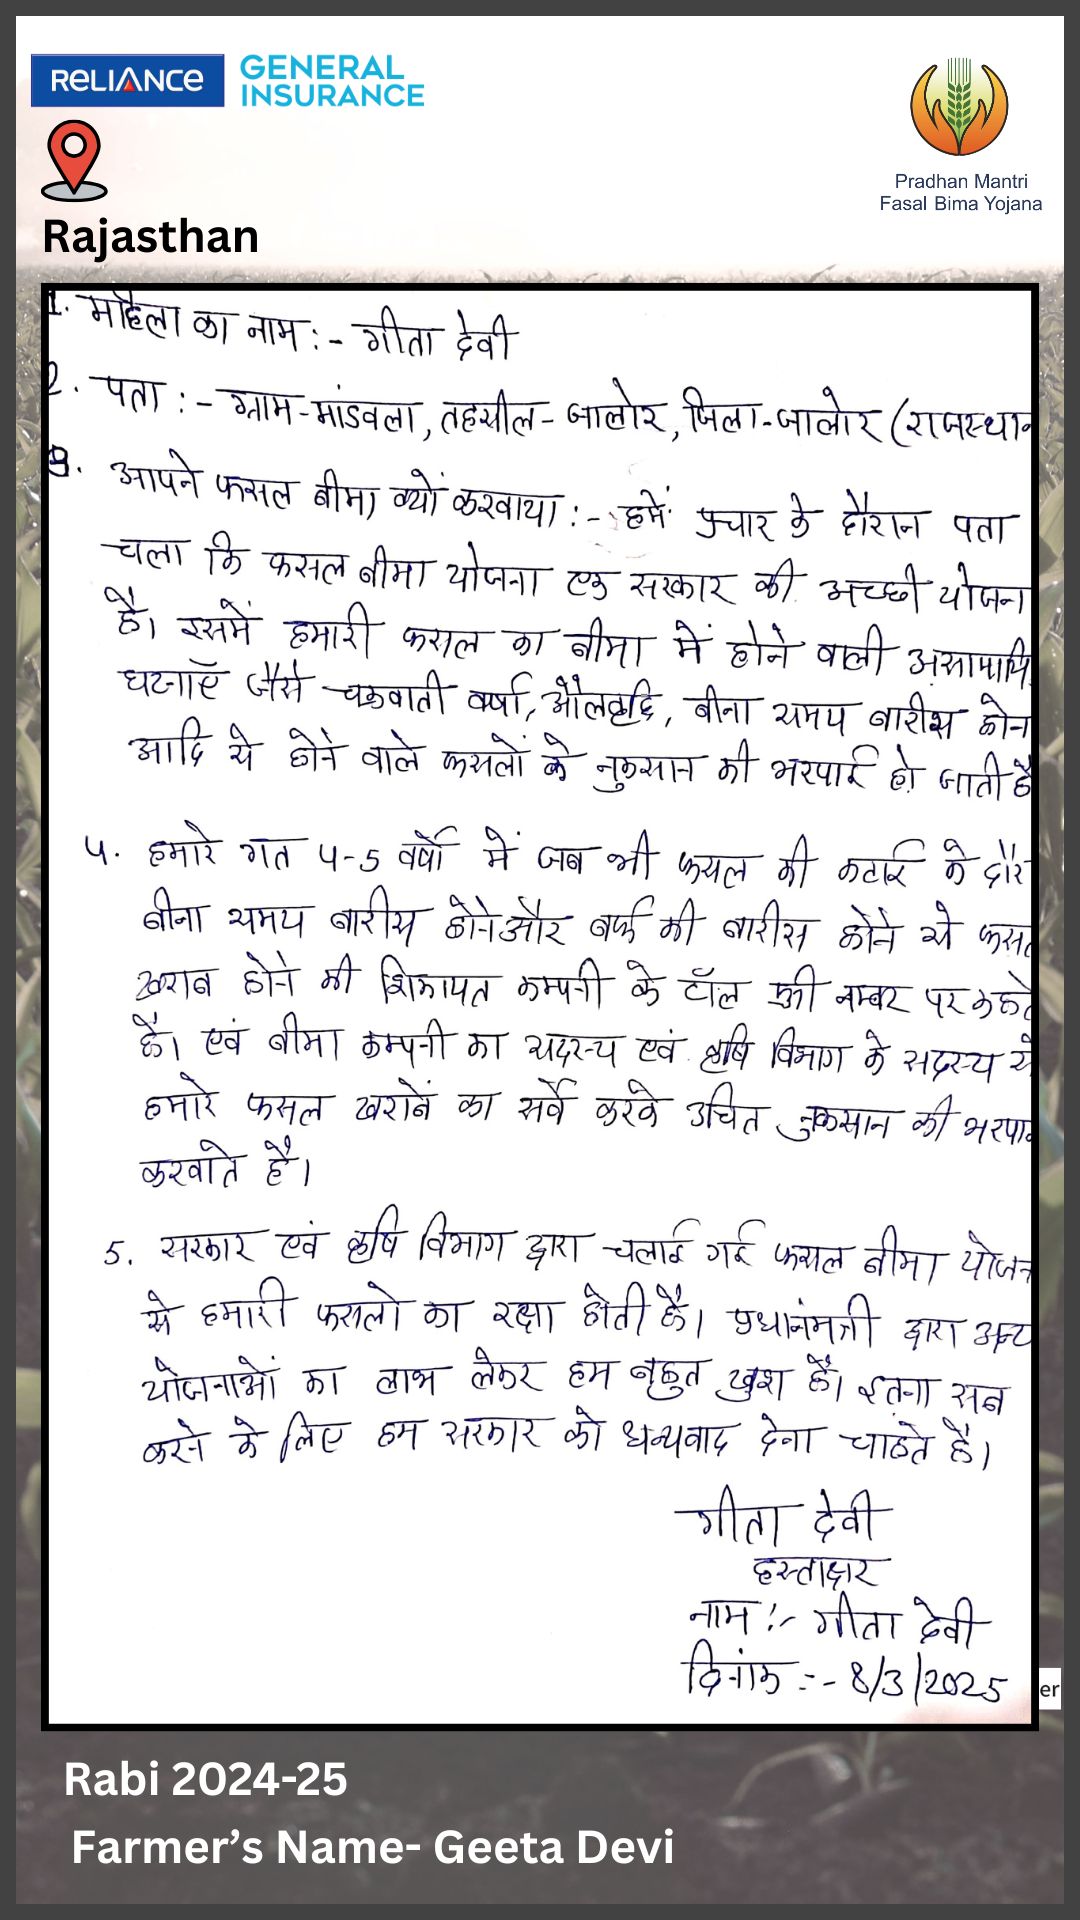 RELIANCE GENERAL INSURANCE
Pradhan Mantri
Fasal Bima Yojana
Rajasthan
1. महिला का नाम :- गीता देवी
2. पता :- ग्राम-मांडवला, तहसील- जालोर, जिला-जालोर (राजस्थान
3. आपने फसल बीमा क्यों करवाया :- हमें प्रचार के दौरान पता
चला कि फसल बीमा योजना एक सरकार की अच्छी योजन
है। इसमें हमारी फसल का बीमा में होने वाली असामायि
घटनाएँ जैसे चक्रवाती वर्षा, औलवृद्दि, बीना समय बारीश होन
आदि से होने वाले फसलों के नुकसान की भरपाई हो जाती है
4. हमारे गत 4-5 वर्षो में जब भी फसल की कटाई के दौर
बीना समय बारीस होने और बर्फ की बारीस होने से फस
खराब होने की शिकायत कम्पनी के टॉल फ्री नम्बर पर कहते
है। एवं बीमा कम्पनी का सदस्य एवं कृषि विभाग के सदस्य से
हमारे फसल खराबें का सर्वे करके उचित नुकसान की भरपा
करवाते है।
5. सरकार एवं कृषि विभाग द्वारा चलाई गई फसल बीमा योजन
से हमारी फसलो का रक्षा होती है। प्रधानंमत्री द्वारा अन्य
योजनाओं का लाभ लेकर हम बहुत खुश है। इतना सब
करने के लिए हम सरकार को धन्यवाद देना चाहते है।
गीता देवी
हस्ताक्षर
नाम :- गीता देवी
दिनांक :- 8/3/2025
er
Rabi 2024-25
Farmer’s Name- Geeta Devi